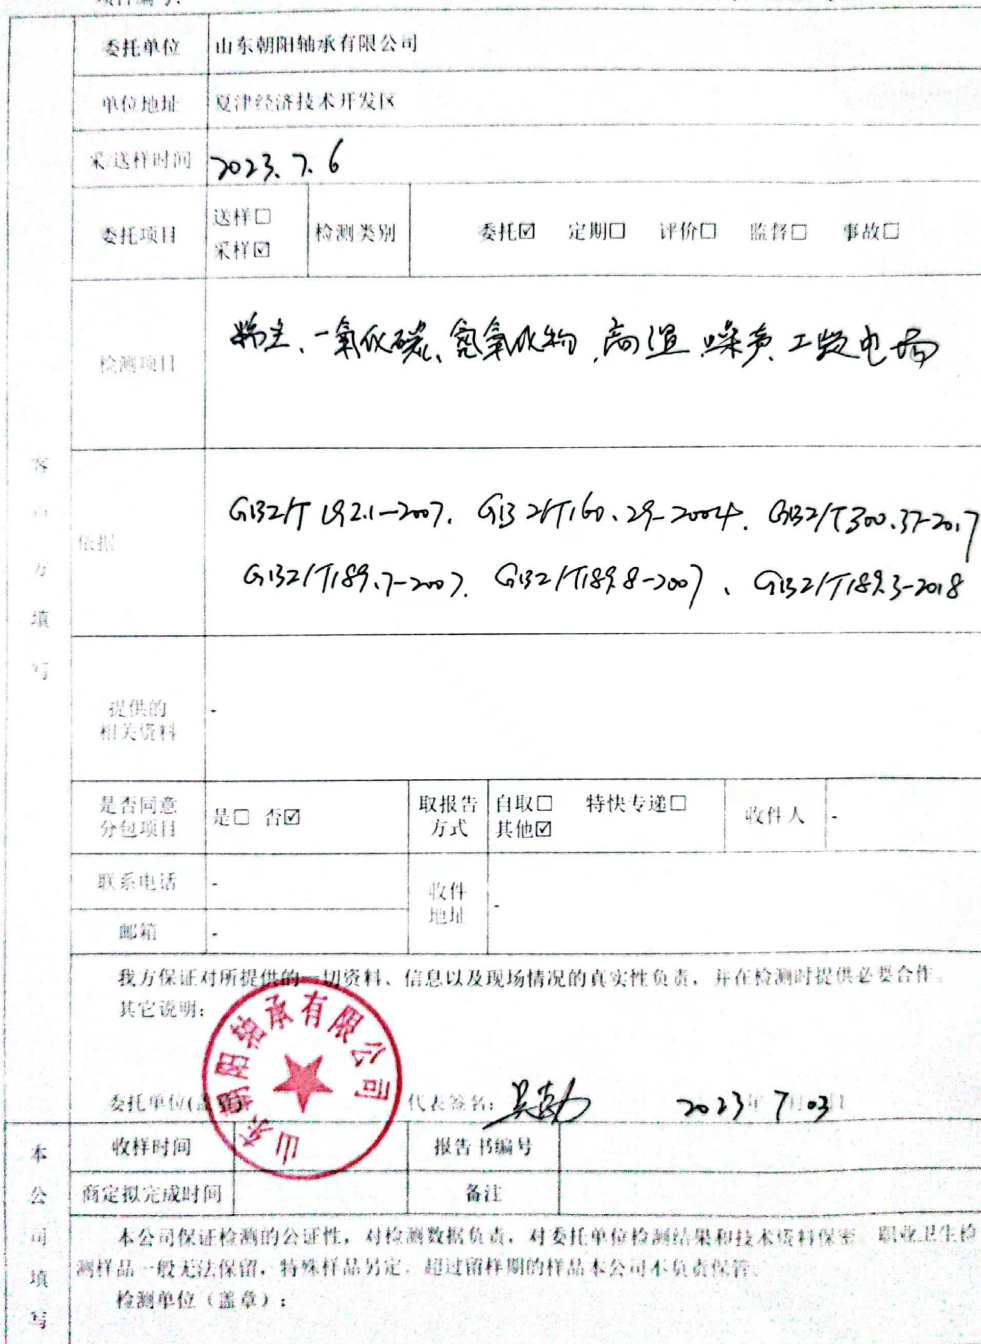 委托单位 山东朝阳轴承有限公司
单位地址 夏津经济技术开发区
采/送样时间 2023.7.6
委托项目 送样☐ 采样☑ 检测类别 委托☑ 定期☐ 评价☐ 监督☐ 事故☐
检测项目 粉尘、一氧化碳、氮氧化物、高温、噪声、工频电场
客户方填写
依据 GBZ/T 192.1-2007、GBZ/T160.29-2004、GBZ/T300.37-2017
GBZ/T189.7-2007、GBZ/T189.8-2007、GBZ/T189.3-2018
提供的
相关资料 -
是否同意
分包项目 是☐ 否☑ 取报告
方式 自取☐ 特快专递☐
其他☑ 收件人 -
联系电话 - 收件
地址 -
邮箱 -
我方保证对所提供的一切资料、信息以及现场情况的真实性负责，并在检测时提供必要合作。
其它说明：
山东朝阳轴承有限公司
委托单位(盖章) 代表签名： 2023年 7月03日
本公司填写
收样时间 报告书编号
商定拟完成时间 备注
本公司保证检测的公证性，对检测数据负责，对委托单位检测结果和技术资料保密。职业卫生检
测样品一般无法保留，特殊样品另定。超过留样期的样品本公司不负责保管。
检测单位（盖章）：